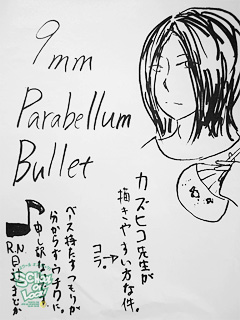 9mm
Parabellum
Bullet
カズヒコ先生が
描きやすい方な件。
→
コラ。
ベース持たすつもりが
分からずウチワに。
申し訳ない
R.N